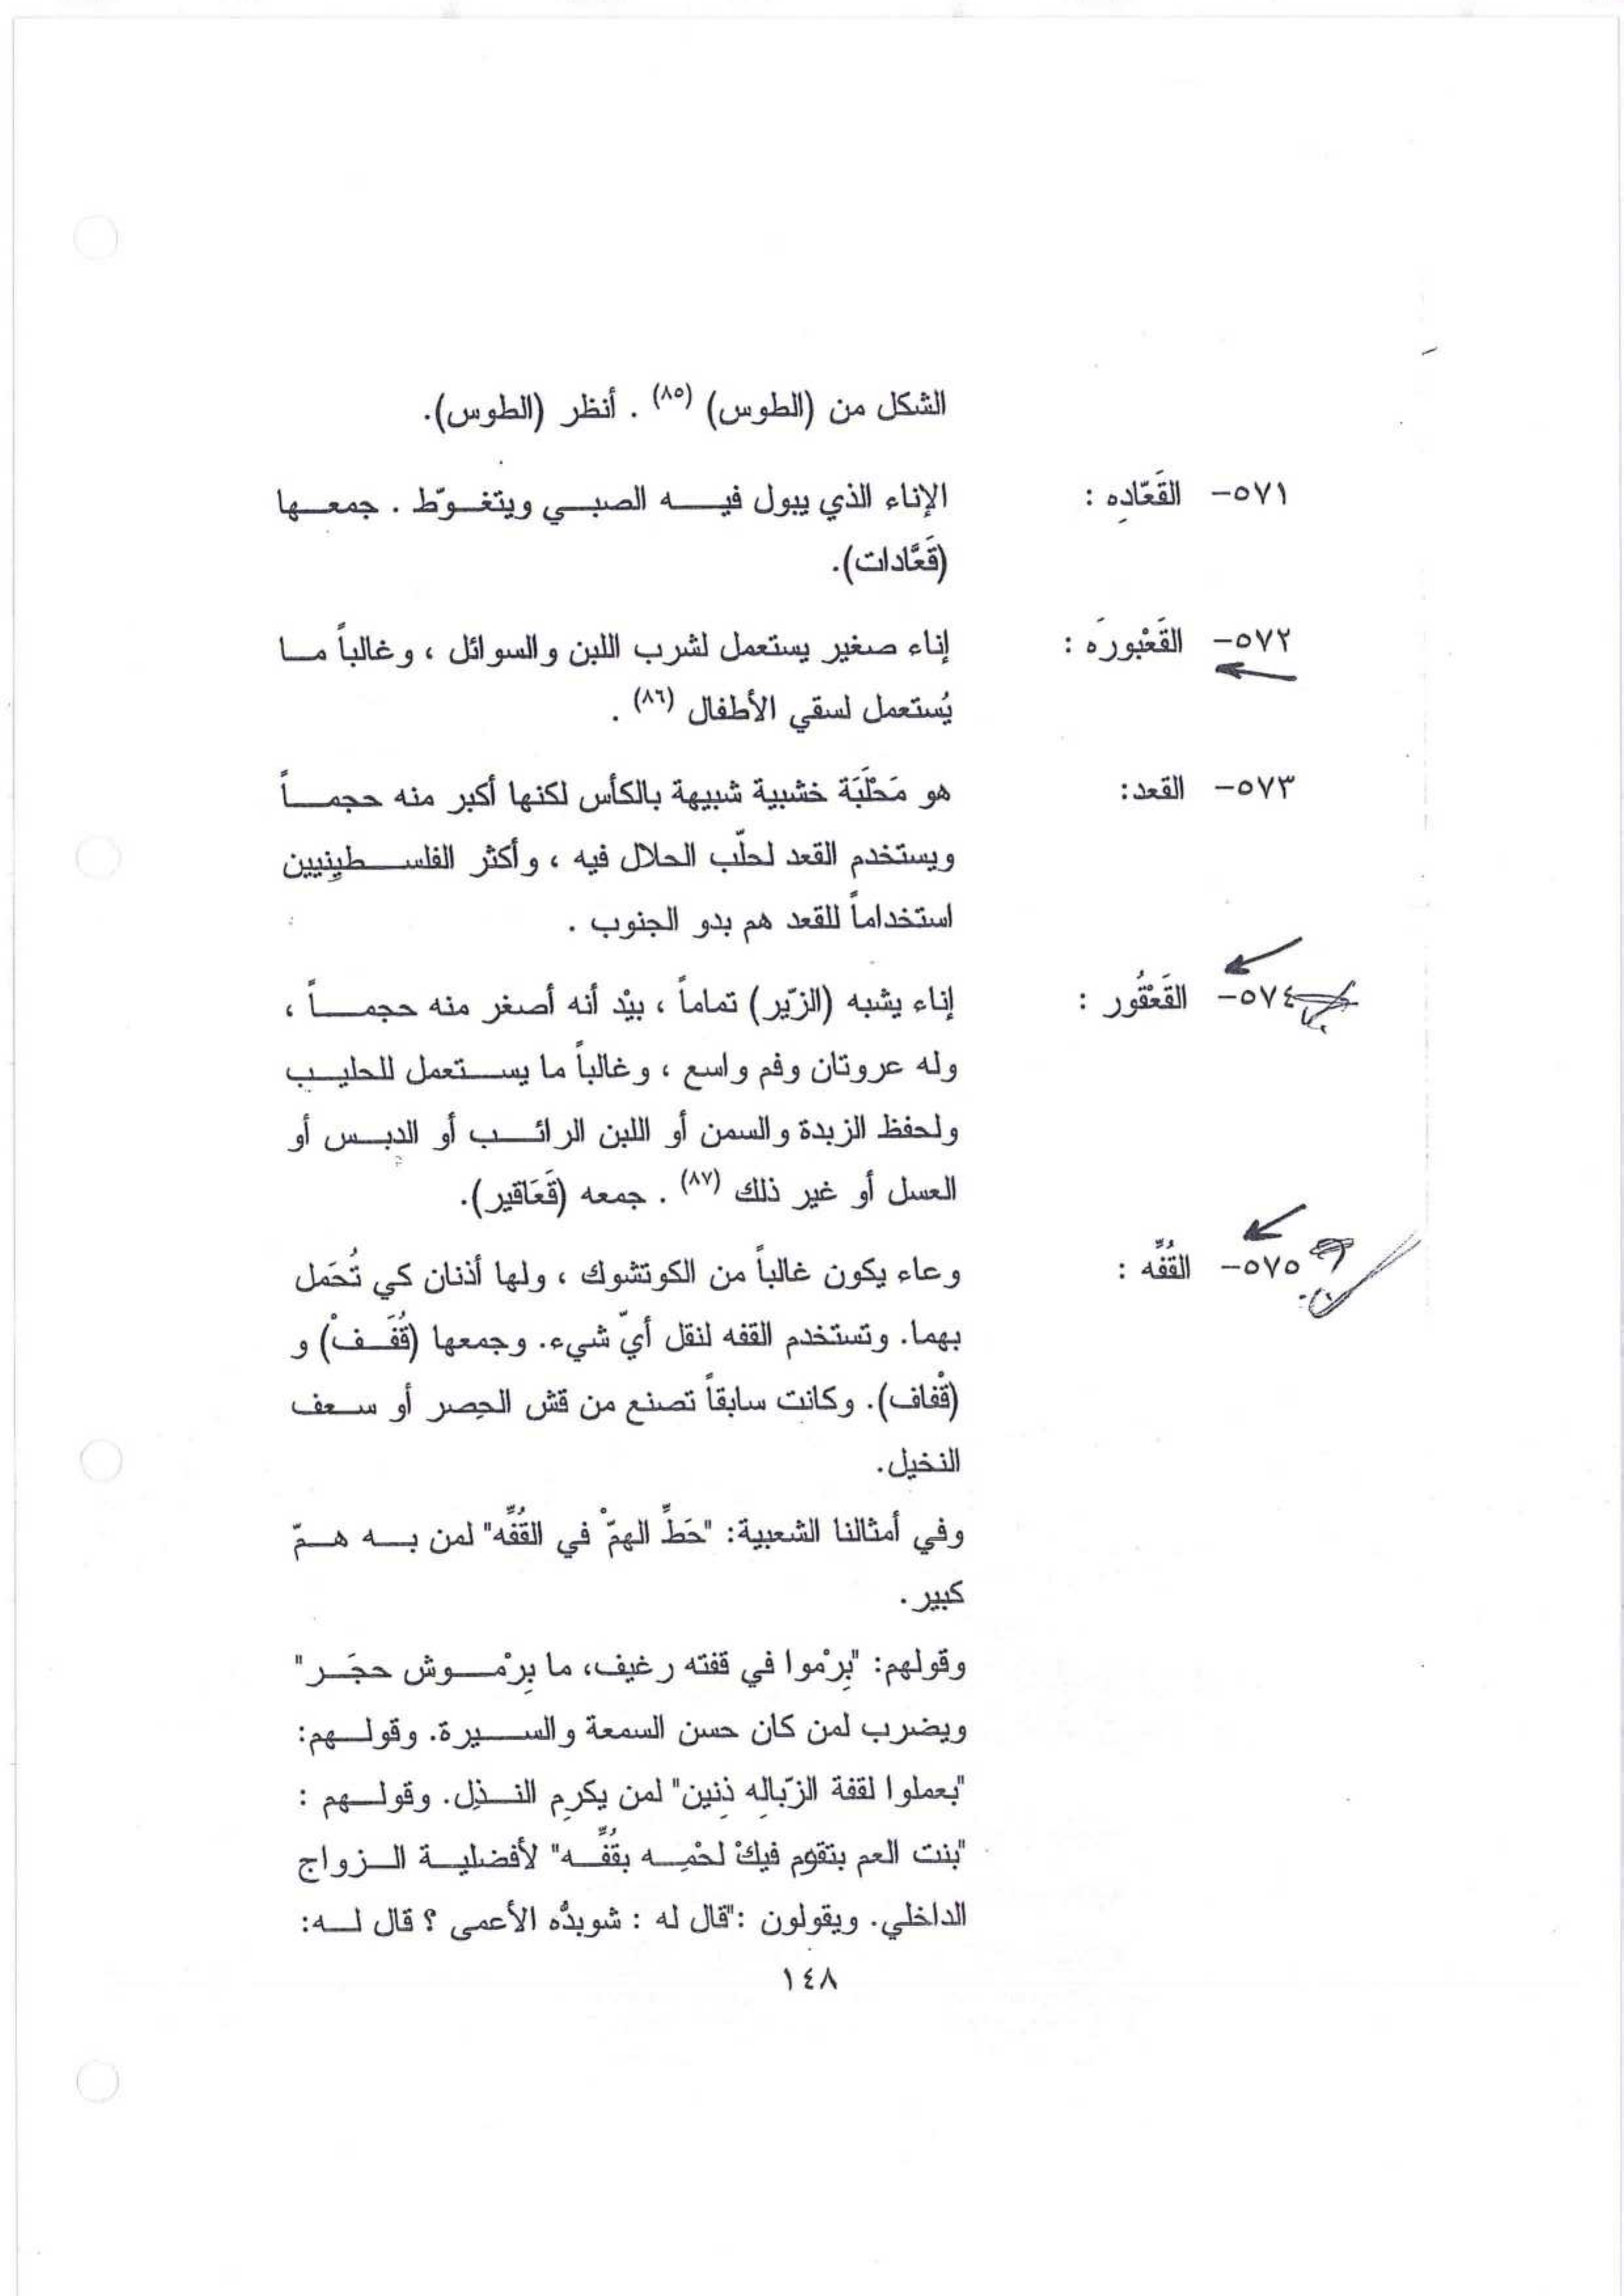 الشكل من (الطوس) (٨٥) . أنظر (الطوس).
٥٧١- القَعّادِه : الإناء الذي يبول فيه الصبي ويتغوّط . جمعها
(قَعَّادات).
٥٧٢- القَعْبورَه : إناء صغير يستعمل لشرب اللبن والسوائل ، وغالباً ما
يُستعمل لسقي الأطفال (٨٦) .
٥٧٣- القعد: هو مَحْلَبَة خشبية شبيهة بالكأس لكنها أكبر منه حجماً
ويستخدم القعد لحلّب الحلال فيه ، وأكثر الفلسطينيين
استخداماً للقعد هم بدو الجنوب .
٥٧٤- القَعْقُور : إناء يشبه (الزّير) تماماً ، بيْد أنه أصغر منه حجماً ،
وله عروتان وفم واسع ، وغالباً ما يستعمل للحليب
ولحفظ الزبدة والسمن أو اللبن الرائب أو الدبس أو
العسل أو غير ذلك (٨٧) . جمعه (قَعَاقير).
٥٧٥- القُفِّه : وعاء يكون غالباً من الكوتشوك ، ولها أذنان كي تُحَمل
بهما. وتستخدم القفه لنقل أيّ شيء. وجمعها (قُفَفْ) و
(قْفاف). وكانت سابقاً تصنع من قش الحِصر أو سعف
النخيل.
وفي أمثالنا الشعبية: "حَطِّ الهمّْ في القُفِّه" لمن به همّ
كبير.
وقولهم: "بِرْموا في قفته رغيف، ما بِرْموش حجَر"
ويضرب لمن كان حسن السمعة والسيرة. وقولهم:
"بعملوا لقفة الزّبالِه ذِنين" لمن يكرِم النذِل. وقولهم :
"بنت العم بتقوم فيكْ لحْمِه بقُفِّه" لأفضلية الزواج
الداخلي. ويقولون :"قال له : شوبدُّه الأعمى ؟ قال له:
١٤٨